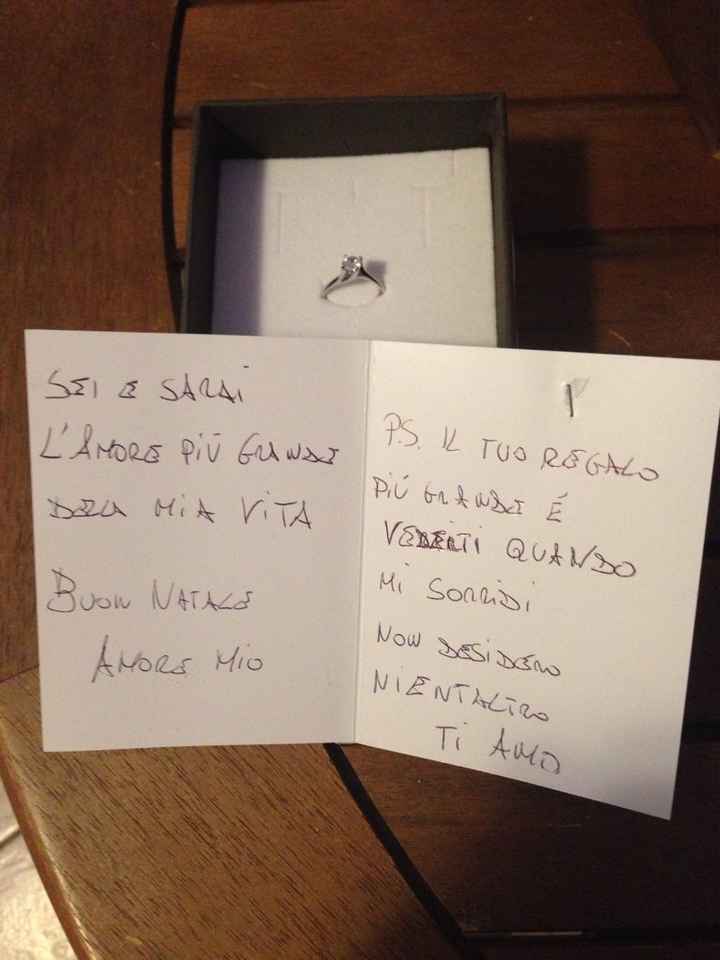 SEI E SARAI
L'AMORE PIÙ GRANDE
DELLA MIA VITA
BUON NATALE
AMORE MIO
P.S. IL TUO REGALO
PIÙ GRANDE É
VEDERTI QUANDO
MI SORRIDI
NON DESIDERO
NIENTALTRO
TI AMO